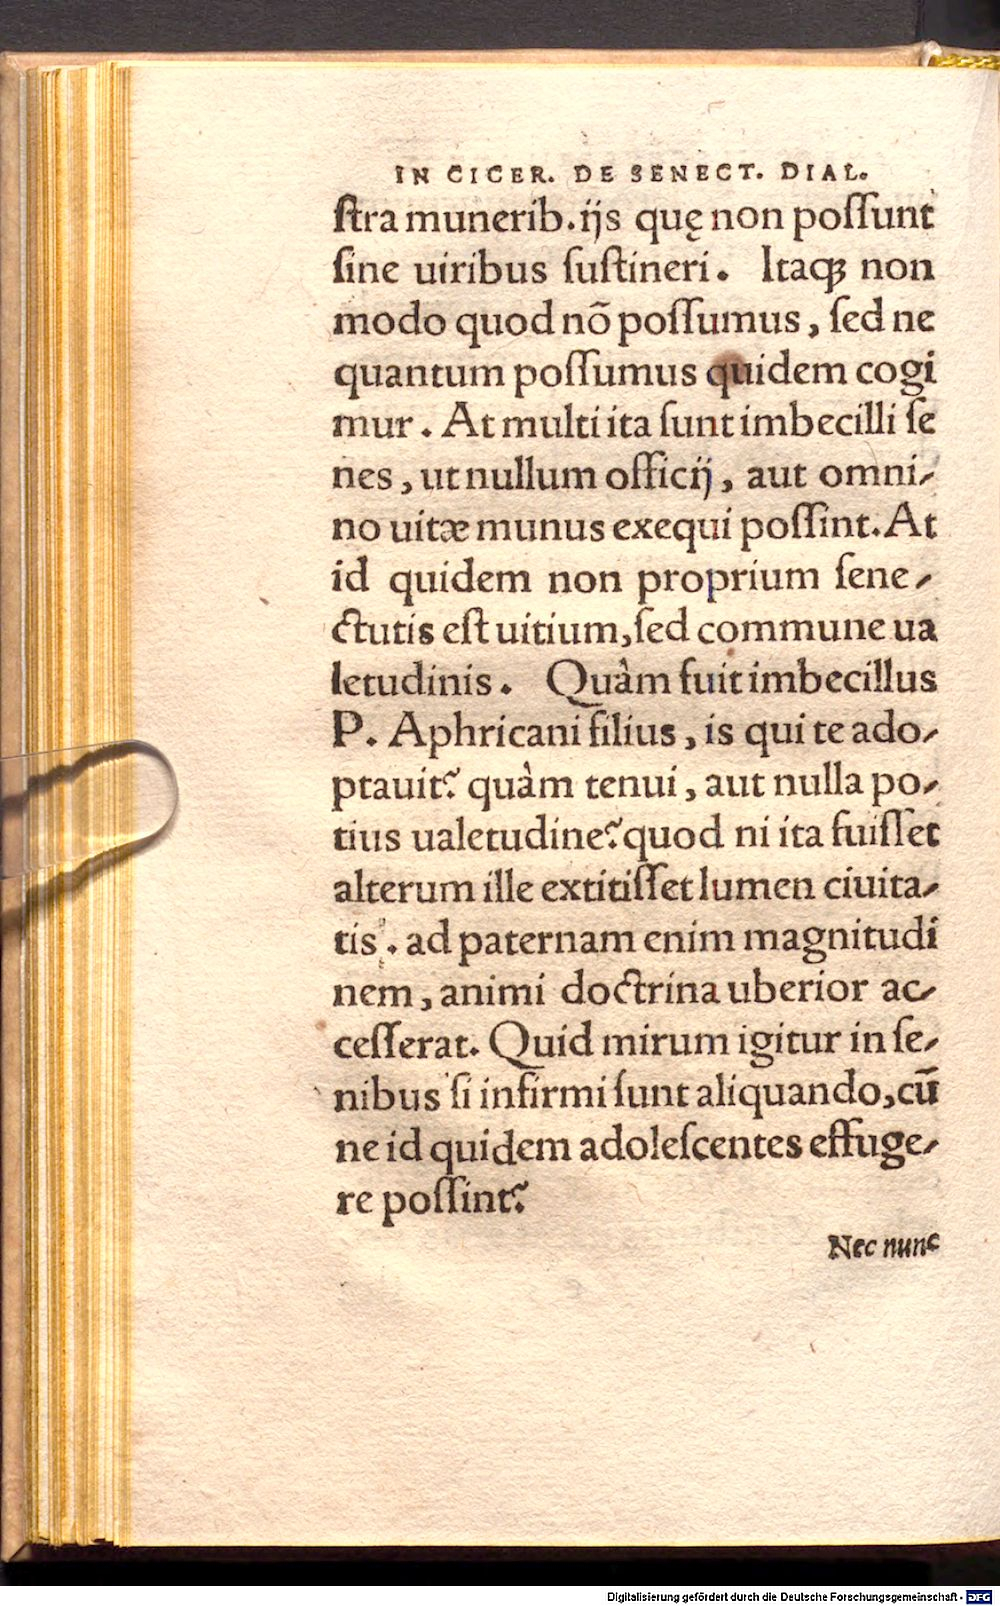 IN CICER. DE SENECT. DIAL.
ſtra munerib. ijs quę non poſſunt
ſine uiribus ſuſtineri. Itaqꝫ non
modo quod nõ poſſumus, ſed ne
quantum poſſumus quidem cogi
mur. At multi ita ſunt imbecilli ſe
nes, ut nullum officij, aut omni-
no uitæ munus exequi poſſint. At
id quidem non proprium ſene-
ctutis eſt uitium, ſed commune ua
letudinis. Quàm fuit imbecillus
P. Aphricani filius, is qui te ado-
ptauit? quàm tenui, aut nulla po-
tius ualetudine? quod ni ita fuiſſet
alterum ille extitiſſet lumen ciuita-
tis. ad paternam enim magnitudi
nem, animi doctrina uberior ac-
ceſſerat. Quid mirum igitur in ſe-
nibus ſi infirmi ſunt aliquando, cū
ne id quidem adoleſcentes effuge-
re poſſint?
Nec nunc
Digitalisierung gefördert durch die Deutsche Forschungsgemeinschaft - DFG